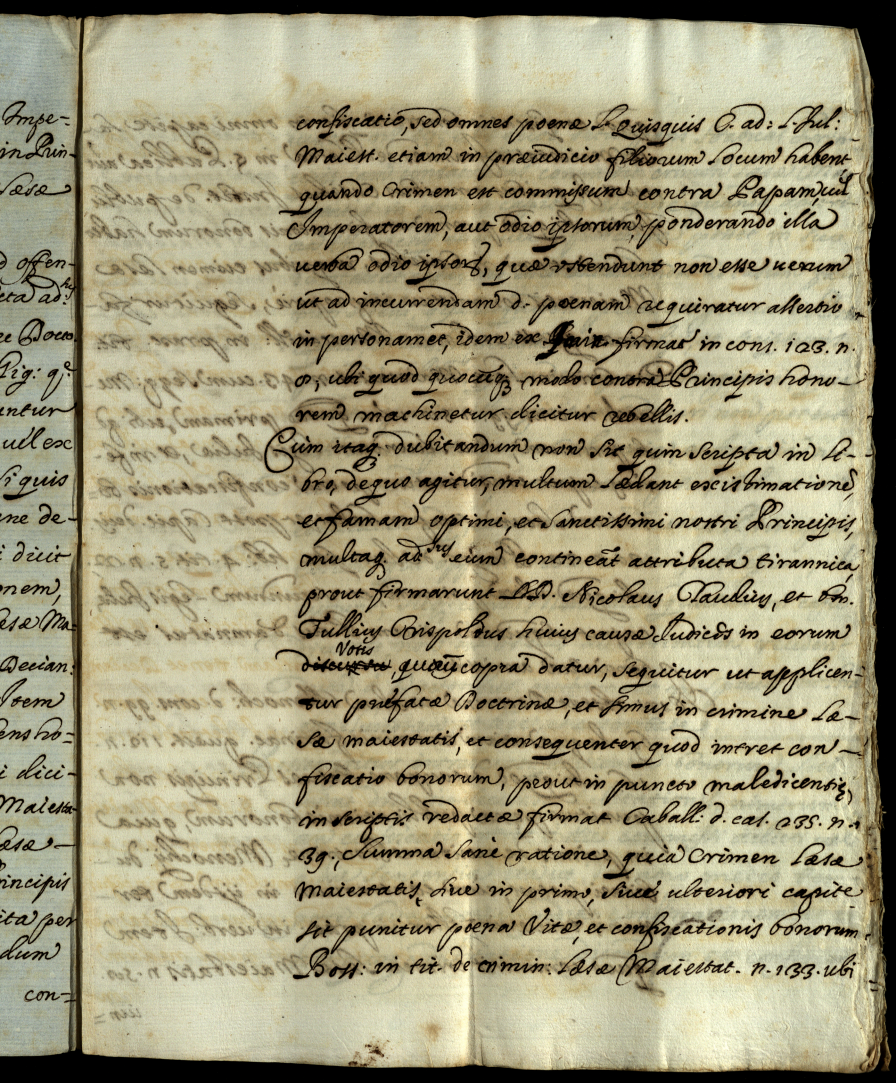 Impe-
in Prin-
Læsæ
d offen-
cta ad
re Docto.
Fig: q.
untur
uel ex
Si quis
ne de-
i dicit
onem,
æsæ Ma-
Decian:
Item
ens ho-
i dici-
Maiesta-
Læsæ
rincipis
ita per
dum
con-
confiscatio, sed omnes poenæ L. Quisquis C. ad: L. Jul:
Maiest. etiam in præiudicio filiorum Locum habent
quando Crimen est commissum contra Papam, uel
Imperatorem, aut odio ipsorum, ponderando illa
uerba odio ipsor., quæ ostendunt non esse uerum
ut ad incurrendam d. poenam requiratur assertio
in personamet, idem ex firmat in cons. 123. n.
8, ubi quod quocūq modo contra Principis hono-
rem machinetur dicitur rebellis.
Cum itaq dubitandum non sit quin scripta in Li-
bro, de quo agitur, multum Lædant existimationē,
et famam optimi, et Sanctissimi nostri Principis,
multaq. ad eius contineāt attributa tirannica,
prout firmarunt DD. Nicolaus Claudius, et bon.
Tullius Crispoldus huius causæ Judices in eorum
Votis
discursu, quorū copia datur, sequitur ut applicen-
tur præfatæ Doctrinæ, et simus in crimine Læ-
sæ maiestatis, et consequenter quod intret con-
fiscatio bonorum, prout in puncto maledicentiæ,
in scriptis redactæ firmat Caball. d. cas. 235. n.
39., Summa Sane ratione, quia Crimen Læsæ
Maiestatis, siue in primo, siue ulteriori capite
sit punitur poena Vitæ, et confiscationis bonorum
Boss: in tit. de crimin: Læsæ Maiestat. n. 133. ubi